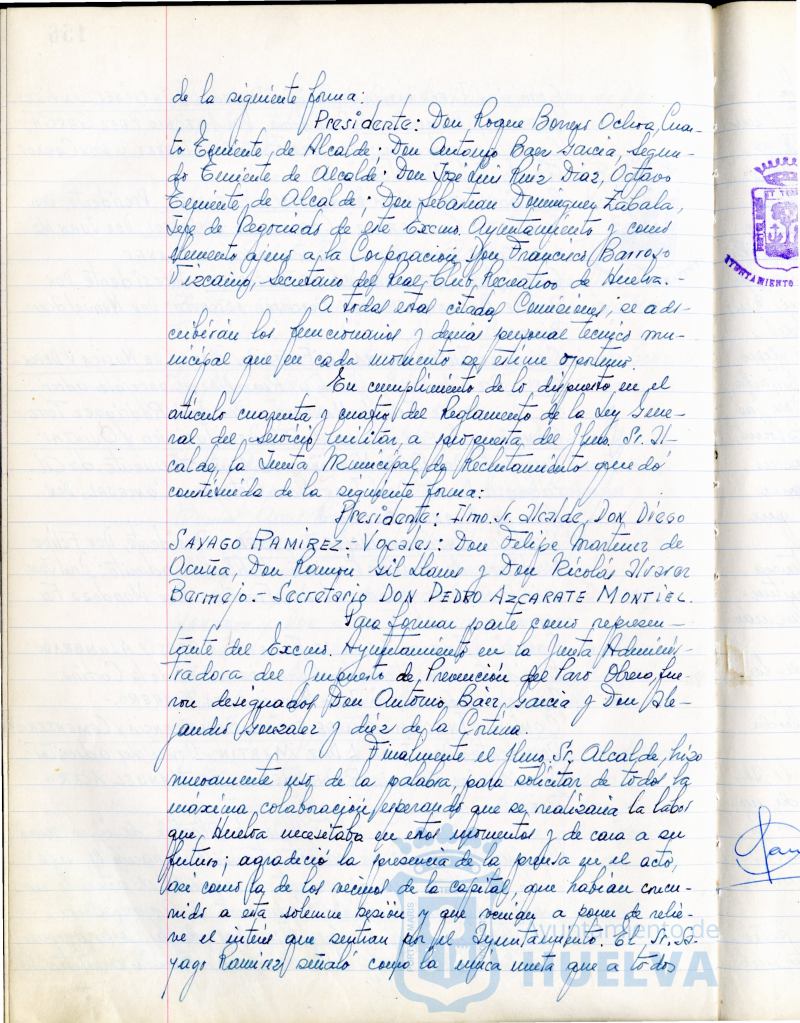 de la siguiente forma:
Presidente: Don Roque Borrero Ochoa, Cuar-
to Teniente de Alcalde; Don Antonio Báez García, Segun-
do Teniente de Alcalde; Don José Luis Ruiz Díaz, Octavo
Teniente de Alcalde; Don Sebastian Dominguez Zabala,
Jefe de Negociado de este Excmo. Ayuntamiento y como
elemento ajeno a la Corporación Don Francisco Barroso
Vizcaino, secretario del Real Club Recreativo de Huelva.-
A todas estas citadas Comisiones, se ads-
cribirán los funcionarios y demás personal tecnico mu-
nicipal que en cada momento se estime oportuno.
En cumplimiento de lo dispuesto en el
artículo cuarenta y cuatro del Reglamento de la Ley Gene-
ral del Servicio Militar, a propuesta del Ilmo. Sr. Al-
calde, la Junta Municipal de Reclutamiento quedó
constituida de la siguiente forma:
Presidente: Ilmo. Sr. Alcalde DON DIEGO
SAYAGO RAMIREZ.- Vocales: Don Felipe Martinez de
Acuña, Don Ramón Gil Llanes y Don Nicolás Alvarez
Bermejo.- Secretario DON PEDRO AZCARATE MONTIEL.
Para formar parte como represen-
tante del Excmo. Ayuntamiento en la Junta Adminis-
tradora del Impuesto de Prevención del Paro Obrero, fue-
ron designados Don Antonio Báez García y Don Ale-
jandro Gonzalez y diéz de la Cortina.
Finalmente el Ilmo. Sr. Alcalde, hizo
nuevamente uso de la palabra, para solicitar de todos la
máxima colaboración, esperando que se realizaría la labor
que Huelva necesitaba en estos momentos y de cara a su
futuro; agradeció la presencia de la prensa en el acto,
así como la de los vecinos de la capital, que habían concu-
rrido a esta solemne sesión y que venían a poner de relie-
ve el interés que sentían por el Ayuntamiento. El Sr. Sa-
yago Ramirez señaló como la unica meta que a todos
AYUNTAMIENTO
Ayuntamiento de
HUELVA